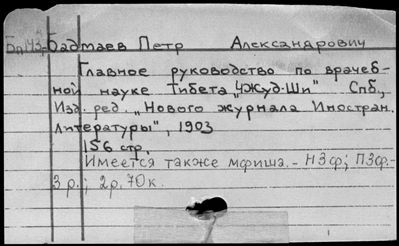 Бп143 Бадмаев Петр Александрович
Главное руководство по врачеб-
ной науке Тибета „Жуд-Ши" Спб.,
Изд. ред. „Нового журнала Иностран.
литературы", 1903
156 стр.
Имеется также мфиша. - НЗф; ПЗф. -
3р.; 2р. 70к.